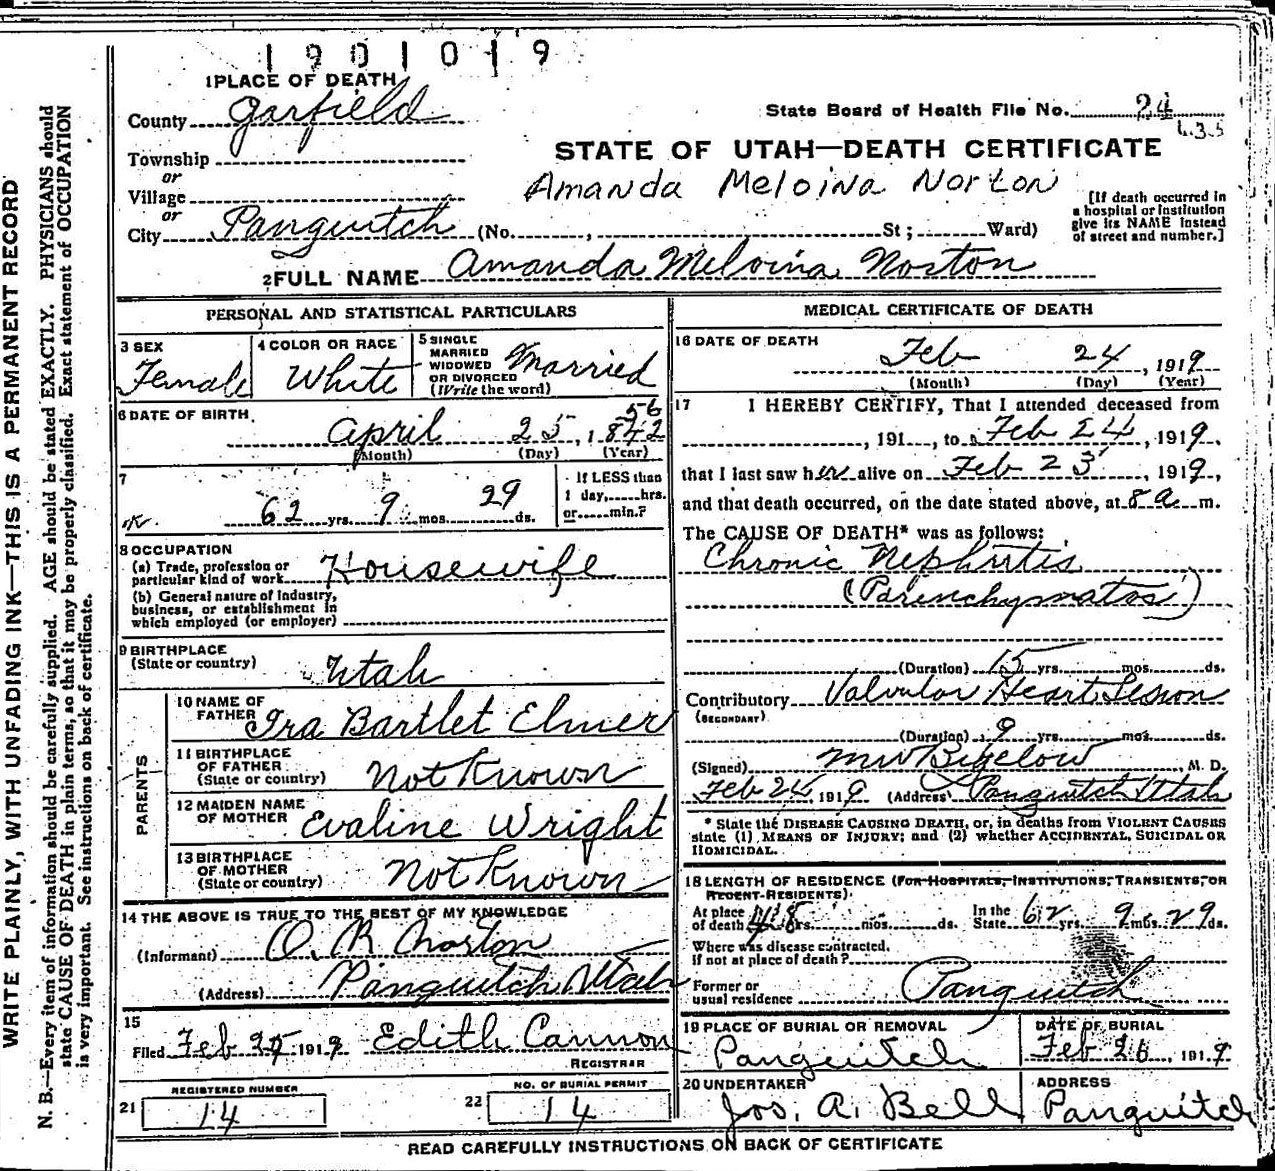 1901019
1 PLACE OF DEATH
County Garfield
State Board of Health File No. 24
Township
or
STATE OF UTAH—DEATH CERTIFICATE
Village
or
Amanda Meloina Norton
City Panguitch (No. , St ; Ward)
[If death occurred in
a hospital or institution
give its NAME instead
of street and number.]
2 FULL NAME Amanda Meloina Norton
PERSONAL AND STATISTICAL PARTICULARS
3 SEX
Female
4 COLOR OR RACE
White
5 SINGLE
MARRIED
WIDOWED
OR DIVORCED
(Write the word)
Married
6 DATE OF BIRTH
56
April 25, 1842
(Month) (Day) (Year)
7
62 yrs. 9 mos. 29 ds.
If LESS than
1 day,.....hrs.
or.....min.?
8 OCCUPATION
(a) Trade, profession or
particular kind of work Housewife
(b) General nature of Industry,
business, or establishment in
which employed (or employer)
9 BIRTHPLACE
(State or country) Utah
PARENTS
10 NAME OF
FATHER Ira Bartlet Elmer
11 BIRTHPLACE
OF FATHER
(State or country) Not Known
12 MAIDEN NAME
OF MOTHER Evaline Wright
13 BIRTHPLACE
OF MOTHER
(State or country) Not Known
14 THE ABOVE IS TRUE TO THE BEST OF MY KNOWLEDGE
(Informant)
(Address) Panguitch Utah
15
Filed Feb 1919 Edith Cannon
REGISTRAR
REGISTERED NUMBER
21 14
NO. OF BURIAL PERMIT
22 14
MEDICAL CERTIFICATE OF DEATH
16 DATE OF DEATH
Feb 24, 1919
(Month) (Day) (Year)
17 I HEREBY CERTIFY, That I attended deceased from
, 191 , to Feb 24, 1919,
that I last saw her alive on Feb 23, 1919,
and that death occurred, on the date stated above, at 8 a m.
The CAUSE OF DEATH* was as follows:
Chronic Nephritis
(Parenchymatos)
(Duration) 15 yrs. mos. ds.
Contributory Valvular Heart Lesion
(SECONDARY)
(Duration) 9 yrs. mos. ds.
(Signed) M W Bigelow M. D.
Feb 24 1919 (Address) Panguitch Utah
* State the DISEASE CAUSING DEATH, or, in deaths from VIOLENT CAUSES
state (1) MEANS OF INJURY; and (2) whether ACCIDENTAL, SUICIDAL OR
HOMICIDAL.
18 LENGTH OF RESIDENCE (FOR HOSPITALS, INSTITUTIONS, TRANSIENTS, OR
RECENT RESIDENTS)
At place
of death yrs. mos. ds. In the
State 62 yrs. 9 mos. 29 ds.
Where was disease contracted.
if not at place of death?
Former or
usual residence Panguitch
19 PLACE OF BURIAL OR REMOVAL
Panguitch
DATE OF BURIAL
Feb 26, 1919
20 UNDERTAKER
Jos. A. Bell
ADDRESS
Panguitch
READ CAREFULLY INSTRUCTIONS ON BACK OF CERTIFICATE
WRITE PLAINLY, WITH UNFADING INK—THIS IS A PERMANENT RECORD
N. B.—Every item of information should be carefully supplied. AGE should be stated EXACTLY. PHYSICIANS should
state CAUSE OF DEATH in plain terms, so that it may be properly classified. Exact statement of OCCUPATION
is very important. See instructions on back of certificate.